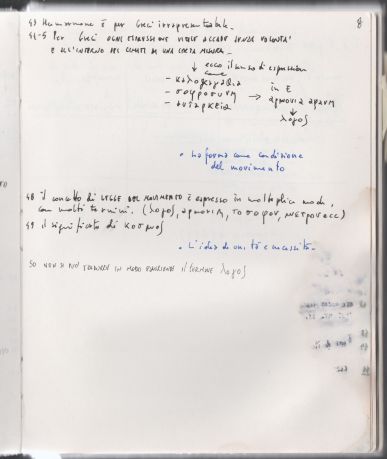 8
43 Hammarmone è per Greci irrapresentabile.
44-5 Per Greci ogni espressione vitale accade senza volontà
e all'interno dei limiti di una certa misura.
↓ ecco il senso di espressioni
come
- καλοκαγαθια in E
- σοφροσυνη → αρμονια αρανη
- αυταρκεια ↓
λογος
• La forma come condizione
del movimento
48 il concetto di LEGGE DEL MOVIMENTO è espresso in molteplici modi,
con molti termini. (λογος, αρμονια, το σοφον, μετρον ecc)
49 il significato di κοσμος
• L'idea di unità e necessità.
50 non si può tradurre in modo esauriente il termine λογος